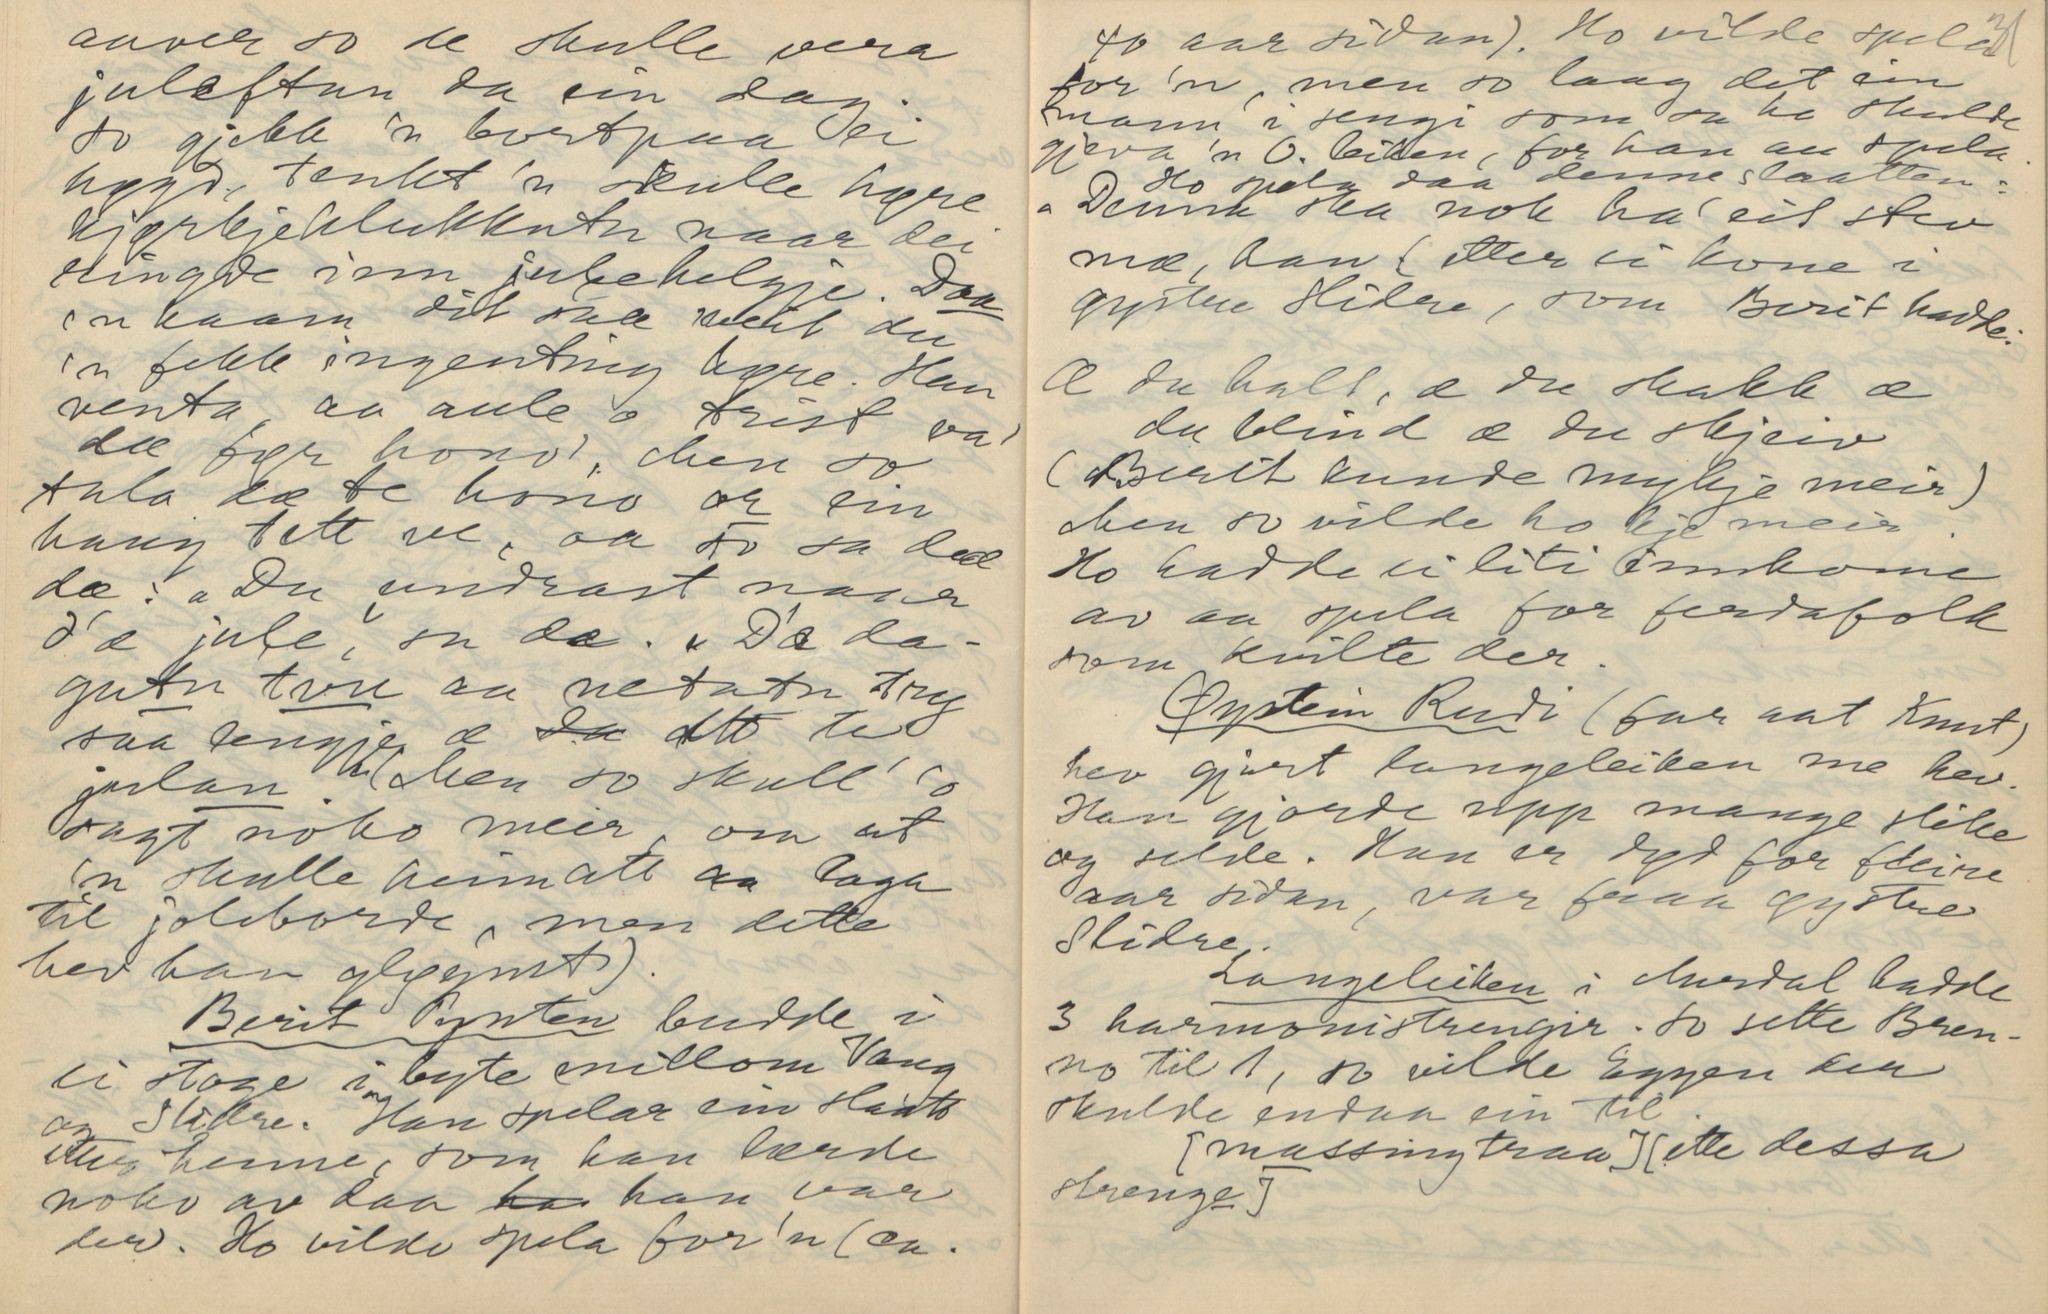 anver so de skulle vera
juleftan da ein dag.
So gjekk 'n bortpaa ei
høgd, tenkt 'n skulle høre
kjørkjeklukkutn naar dei
ringde inn julehelgje. Daa
'n kaam dit sæ veit du
'n fekk ingenting høre. Han
venta, aa aule o trist va'
dæ før hono', Men so
tala dæ te hono or ein
haug tett ve, aa so sa dæ
dæ: "Du undrast naar
d'æ jule", sa dæ. "D'æ da-
gutn tvu aa netatn try
saa lengje æ da att te
julan." (Men so skull 'o
sagt noko meir, om at
'n skulle heimatt aa laga
til joleborde, men dette
hev han gløymt).
Berit Pynten budde i
ei stoge i byte millom Vang
og Slidre. Han spelar ein slaatt
etter henne, som han lærde
noko av daa ho han var
der. Ho vilde spela for 'n (ca.
31
40 aar sidan). Ho vilde spela
for 'n, men so laag det ein
mann i sengi som sa ho skulde
gjeva 'n O. leiken, for han aa spela.
Ho spela daa denne slaatten:
"Denna ska nok ha' eit stev
mæ, han" (etter ei kone i
øystre Slidre, som Berit hadde.
Æ du halt, æ du skakk æ
du blind æ du skjeiv
(Berit kunde mykje meir)
Men so vilde ho kje meir.
Ho hadde ei liti innkome
av aa spela for ferdafolk
som kvilte der.
Øystein Rudi (far aat Knut)
hev gjort langeleiken me hev.
Han gjorde upp mange slike
og selde. Han er død for fleire
aar sidan, var fraa øystre
Slidre.
Langeleiken i Aurdal hadde
3 harmonistrengir. So sette Bren-
no til 1, so vilde Eggen han
skulde endaa ein til.
[massingtraa] [ette dessa
strenge]